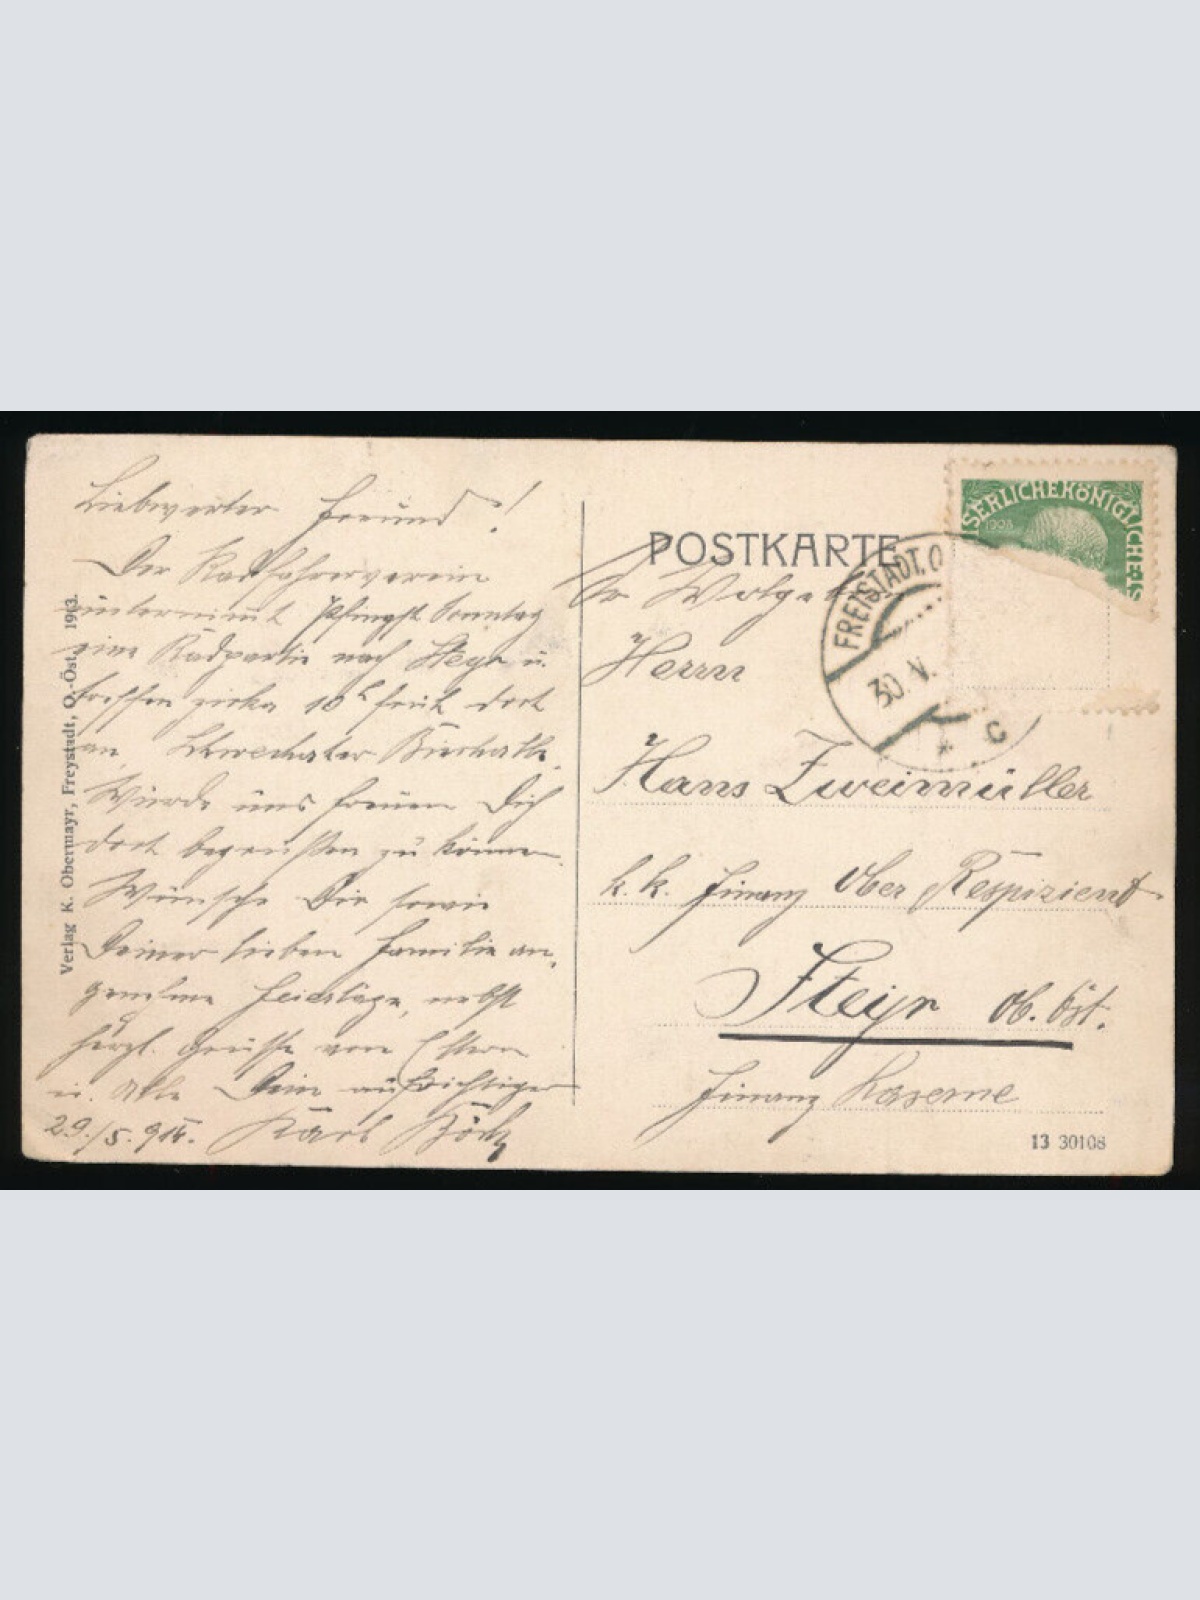 Liebwerter Freund!
Der Radfahrerverein
unternimmt Pfingst Sonntag
eine Radpartie nach Steyr u.
treffen zirka 10h früh dort
an, Schwechater Bierhalle.
Würde uns freuen Dich
dort begrüßen zu können.
Wünsche Dir sowie
Deiner lieben Familie an-
genehme Feiertage, nebst
herzl. Grüsse von Eltern
u. Alle Dein aufrichtiger
29./5. 914. Karl
Verlag K. Obermayr, Freystadt, O.-Öst. 1913.
POSTKARTE
SERLICHE KÖNIGLICHE
1908
FREISTADT, O
30. V.
* C
Sr Wolge
Herrn
Hans Zweimüller
k. k. Finanz Ober Respizient
Steyr ob. Öst.
Finanz Kaserne
13 30108